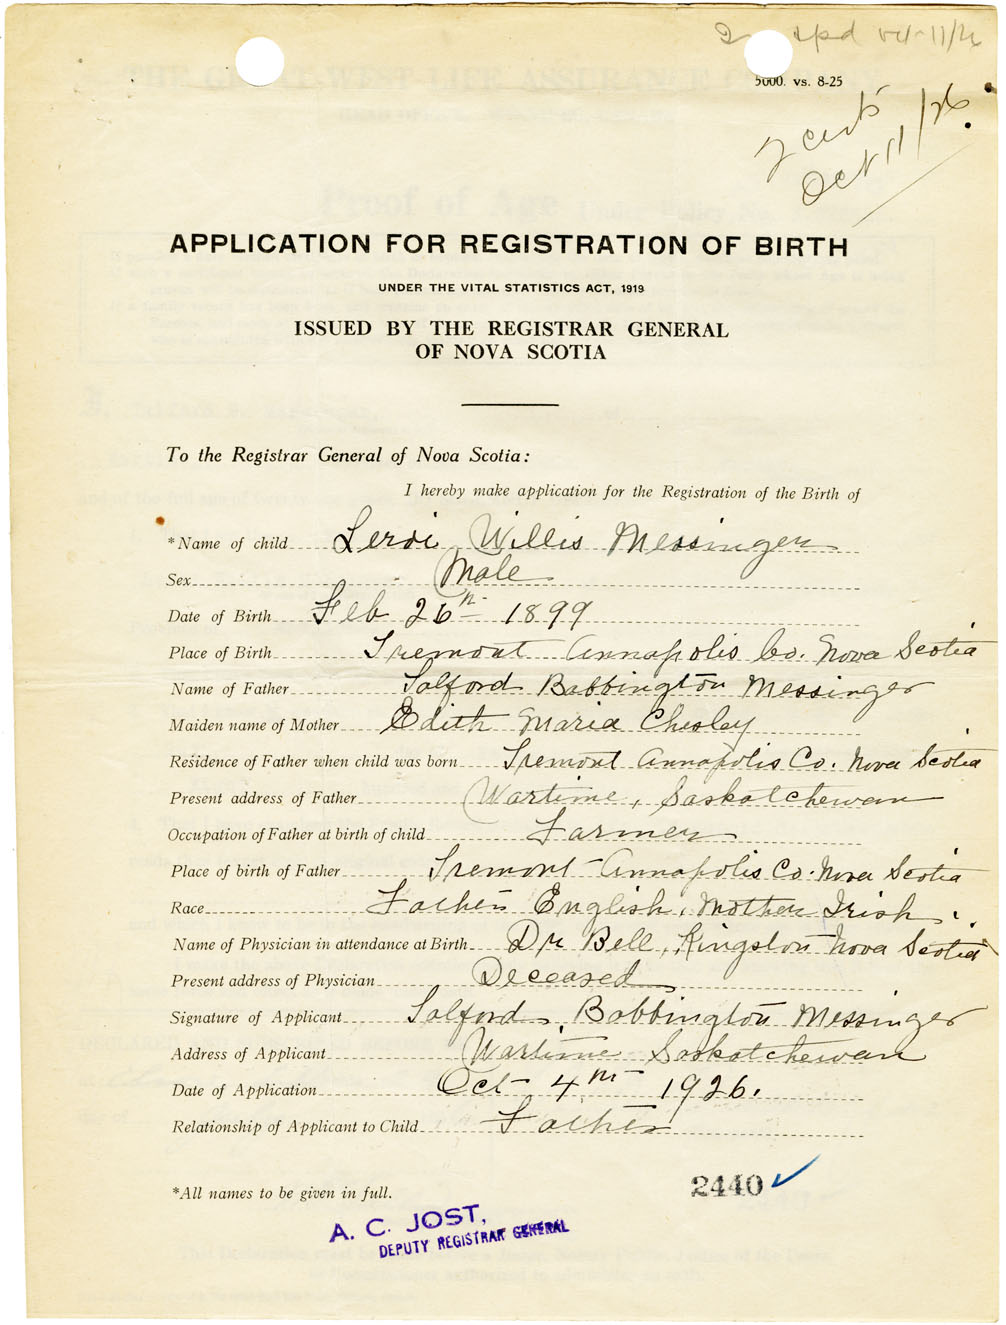 5000. vs. 8-25
2 certs
Oct 11/26
APPLICATION FOR REGISTRATION OF BIRTH
UNDER THE VITAL STATISTICS ACT, 1919
ISSUED BY THE REGISTRAR GENERAL
OF NOVA SCOTIA
To the Registrar General of Nova Scotia:
I hereby make application for the Registration of the Birth of
*Name of child Leroi Willis Messinger
Sex Male
Date of Birth Feb 26th 1899
Place of Birth Tremont Annapolis Co. Nova Scotia
Name of Father Salford Babbington Messinger
Maiden name of Mother Edith Maria Chesley
Residence of Father when child was born Tremont Annapolis Co. Nova Scotia
Present address of Father Wartime, Saskatchewan
Occupation of Father at birth of child Farmer
Place of birth of Father Tremont Annapolis Co. Nova Scotia
Race Father English, Mother Irish.
Name of Physician in attendance at Birth Dr Bell, Kingston Nova Scotia
Present address of Physician Deceased
Signature of Applicant Salford Babbington Messinger
Address of Applicant Wartime Saskatchewan
Date of Application Oct 4th 1926.
Relationship of Applicant to Child Father
*All names to be given in full.
2440
A. C. JOST,
DEPUTY REGISTRAR GENERAL